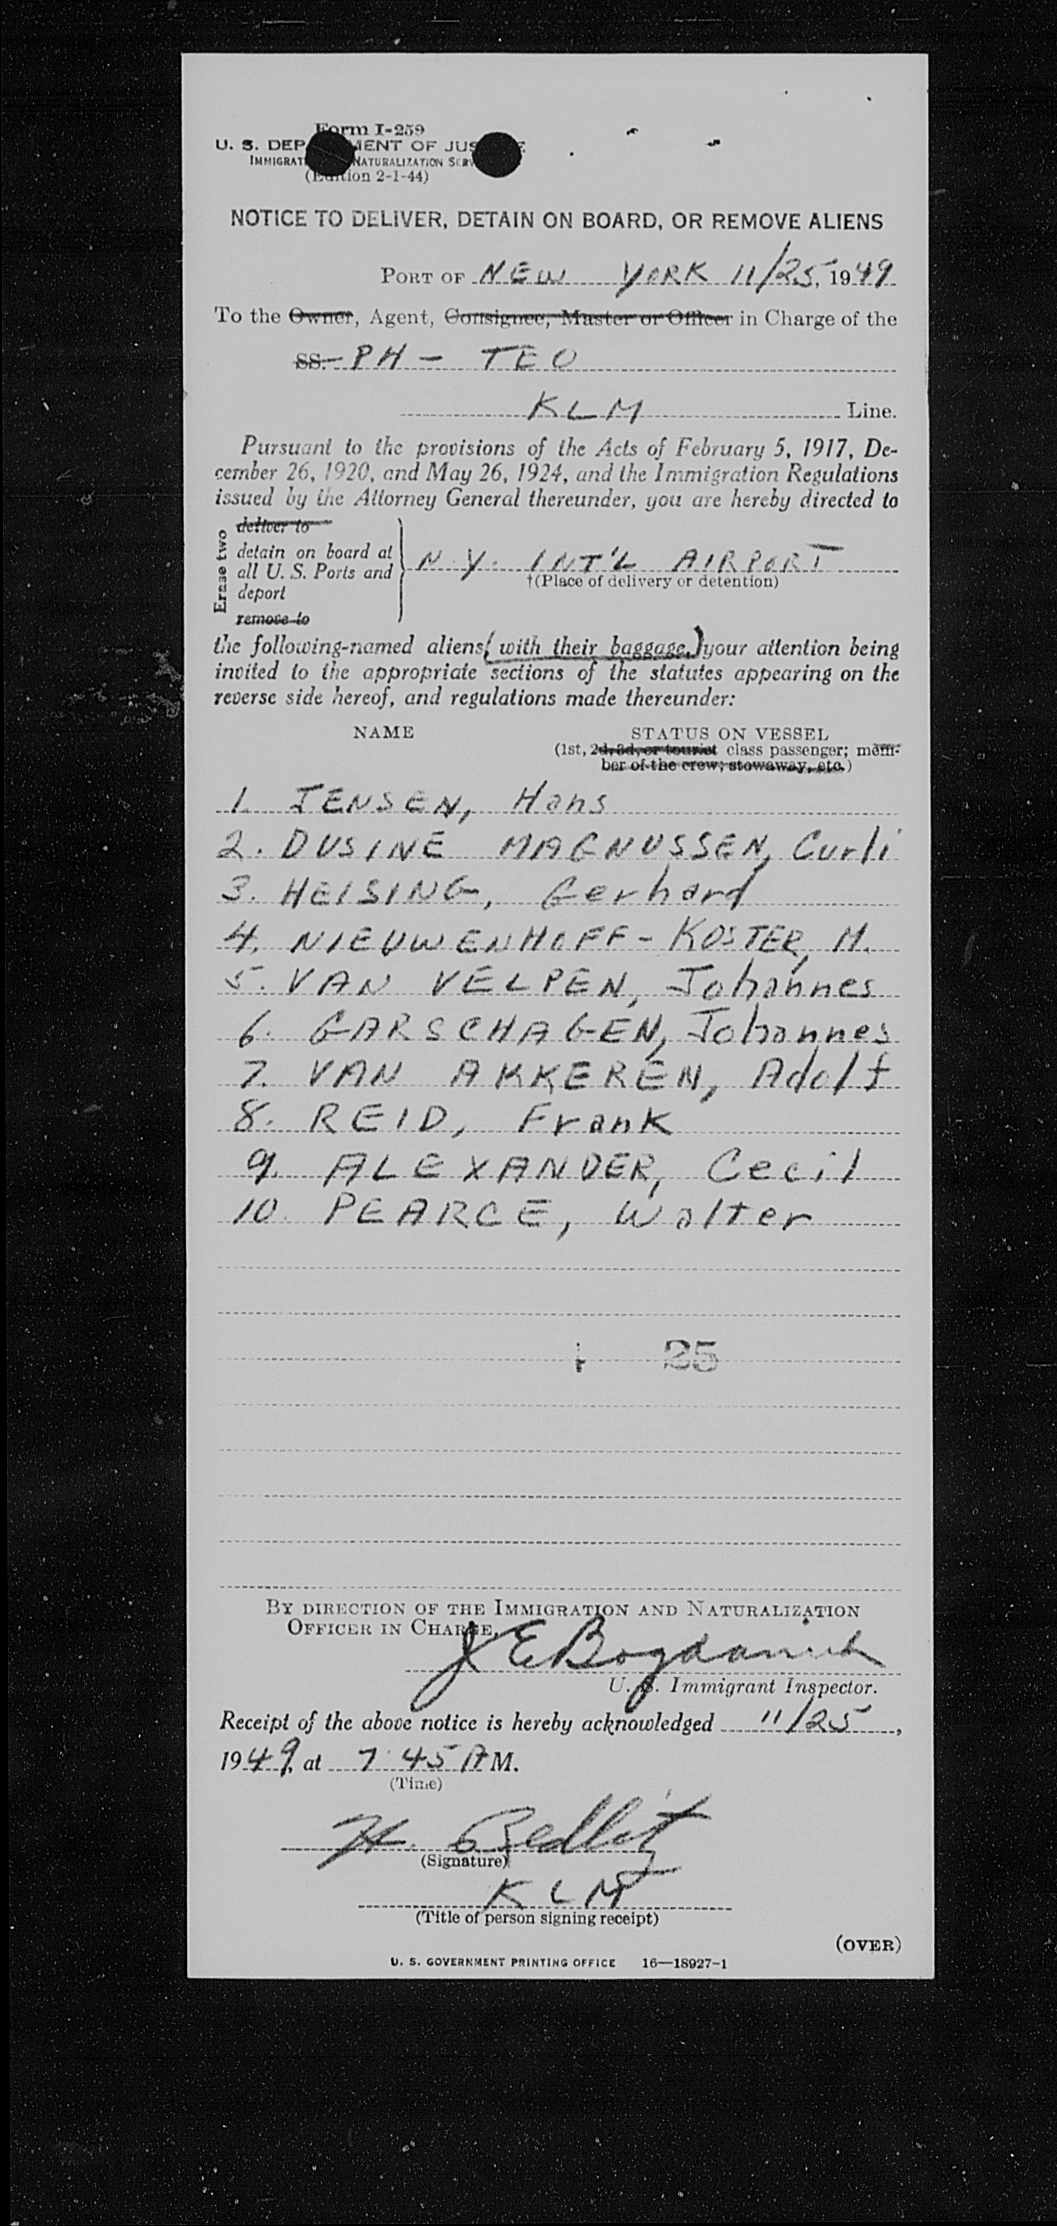 Form I-259
U. S. DEPARTMENT OF JUSTICE
IMMIGRATION NATURALIZATION SERV
(Edition 2-1-44)
NOTICE TO DELIVER, DETAIN ON BOARD, OR REMOVE ALIENS
PORT OF NEW YORK 11/25, 1949
To the Owner, Agent, Consignee, Master or Officer in Charge of the
SS. PH - TEO
KLM Line.
Pursuant to the provisions of the Acts of February 5, 1917, De-
cember 26, 1920, and May 26, 1924, and the Immigration Regulations
issued by the Attorney General thereunder, you are hereby directed to
Erase two
deliver to
detain on board at
all U. S. Ports and
deport
remove to
N.Y. INT'L AIRPORT
†(Place of delivery or detention)
the following-named aliens (with their baggage,) your attention being
invited to the appropriate sections of the statutes appearing on the
reverse side hereof, and regulations made thereunder:
NAME STATUS ON VESSEL
(1st, 2d, 3d, or tourist class passenger; mem-
ber of the crew; stowaway, etc.)
1. JENSEN, Hans
2. DUSINE MAGNUSSEN, Curli
3. HEISING, Gerhard
4. NIEUWENHOFF-KOSTER, M.
5. VAN VELPEN, Johannes
6. GARSCHAGEN, Johannes
7. VAN AKKEREN, Adolf
8. REID, Frank
9. ALEXANDER, Cecil
10. PEARCE, Walter
25
BY DIRECTION OF THE IMMIGRATION AND NATURALIZATION
OFFICER IN CHARGE,
J E
U. S. Immigrant Inspector.
Receipt of the above notice is hereby acknowledged 11/25,
1949, at 7:45 A M.
(Time)
H.
(Signature)
KLM
(Title of person signing receipt)
(OVER)
U. S. GOVERNMENT PRINTING OFFICE 16—18927-1